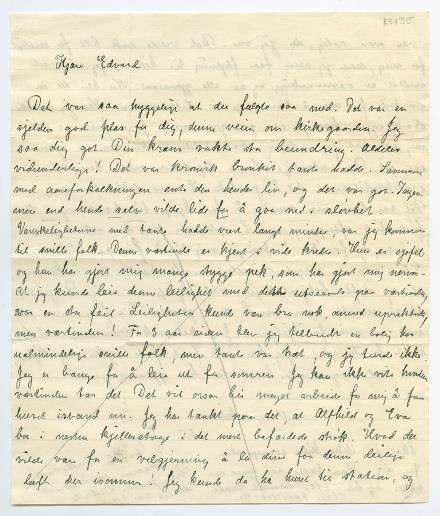 K5135
Kjære Edvard
Det var saa hyggelig at du fulgte saa med. Det var en
sjelden god plas for dig, denne veien om kirkegaarden. Jeg
saa dig godt. Din krans vakte stor beundring. Aldeles
vidunderlig! Det var kronisk bronkit tante hadde. Sammen
med aareforkalkningen endte den hendes liv, og det var got. Ingen
mere end hende selv vilde lide for å gaa ned i sløvhet.
Vanskelighetene med tante hadde vært langt mindre, var jeg kommen
til snille folk. Denne vertinde er kjent i vide kredse. Hun er sjofel
og hun har gjort mig mange stygge pek, som har gjort mig nervøs.
At jeg kunde leie denne leilighet med det utseende paa vertinden,
var en stor feil. Leiligheten kunde være bra nok, omend upraktisk,
men vertinden! For 3 aar siden blev jeg tilbudt en bolig hos
ualmindelig snille folk, men tante var kat, og jeg turde ikke.
Jeg er bange for å leie ut for somren. Jeg kan ikke vite hvordan
vertinden tar det. Det vil også bli meget arbeide for mig å faa
huset istand nu. Jeg har tænkt paa det, at Alfhild og Eva
bor i nesten kjelleretage i det mest befærdede strøk. Hvad det
vilde være for en velgjerning å la dem faa denne deilige
luft her isommer! Jeg kunde da ha huset til station, og